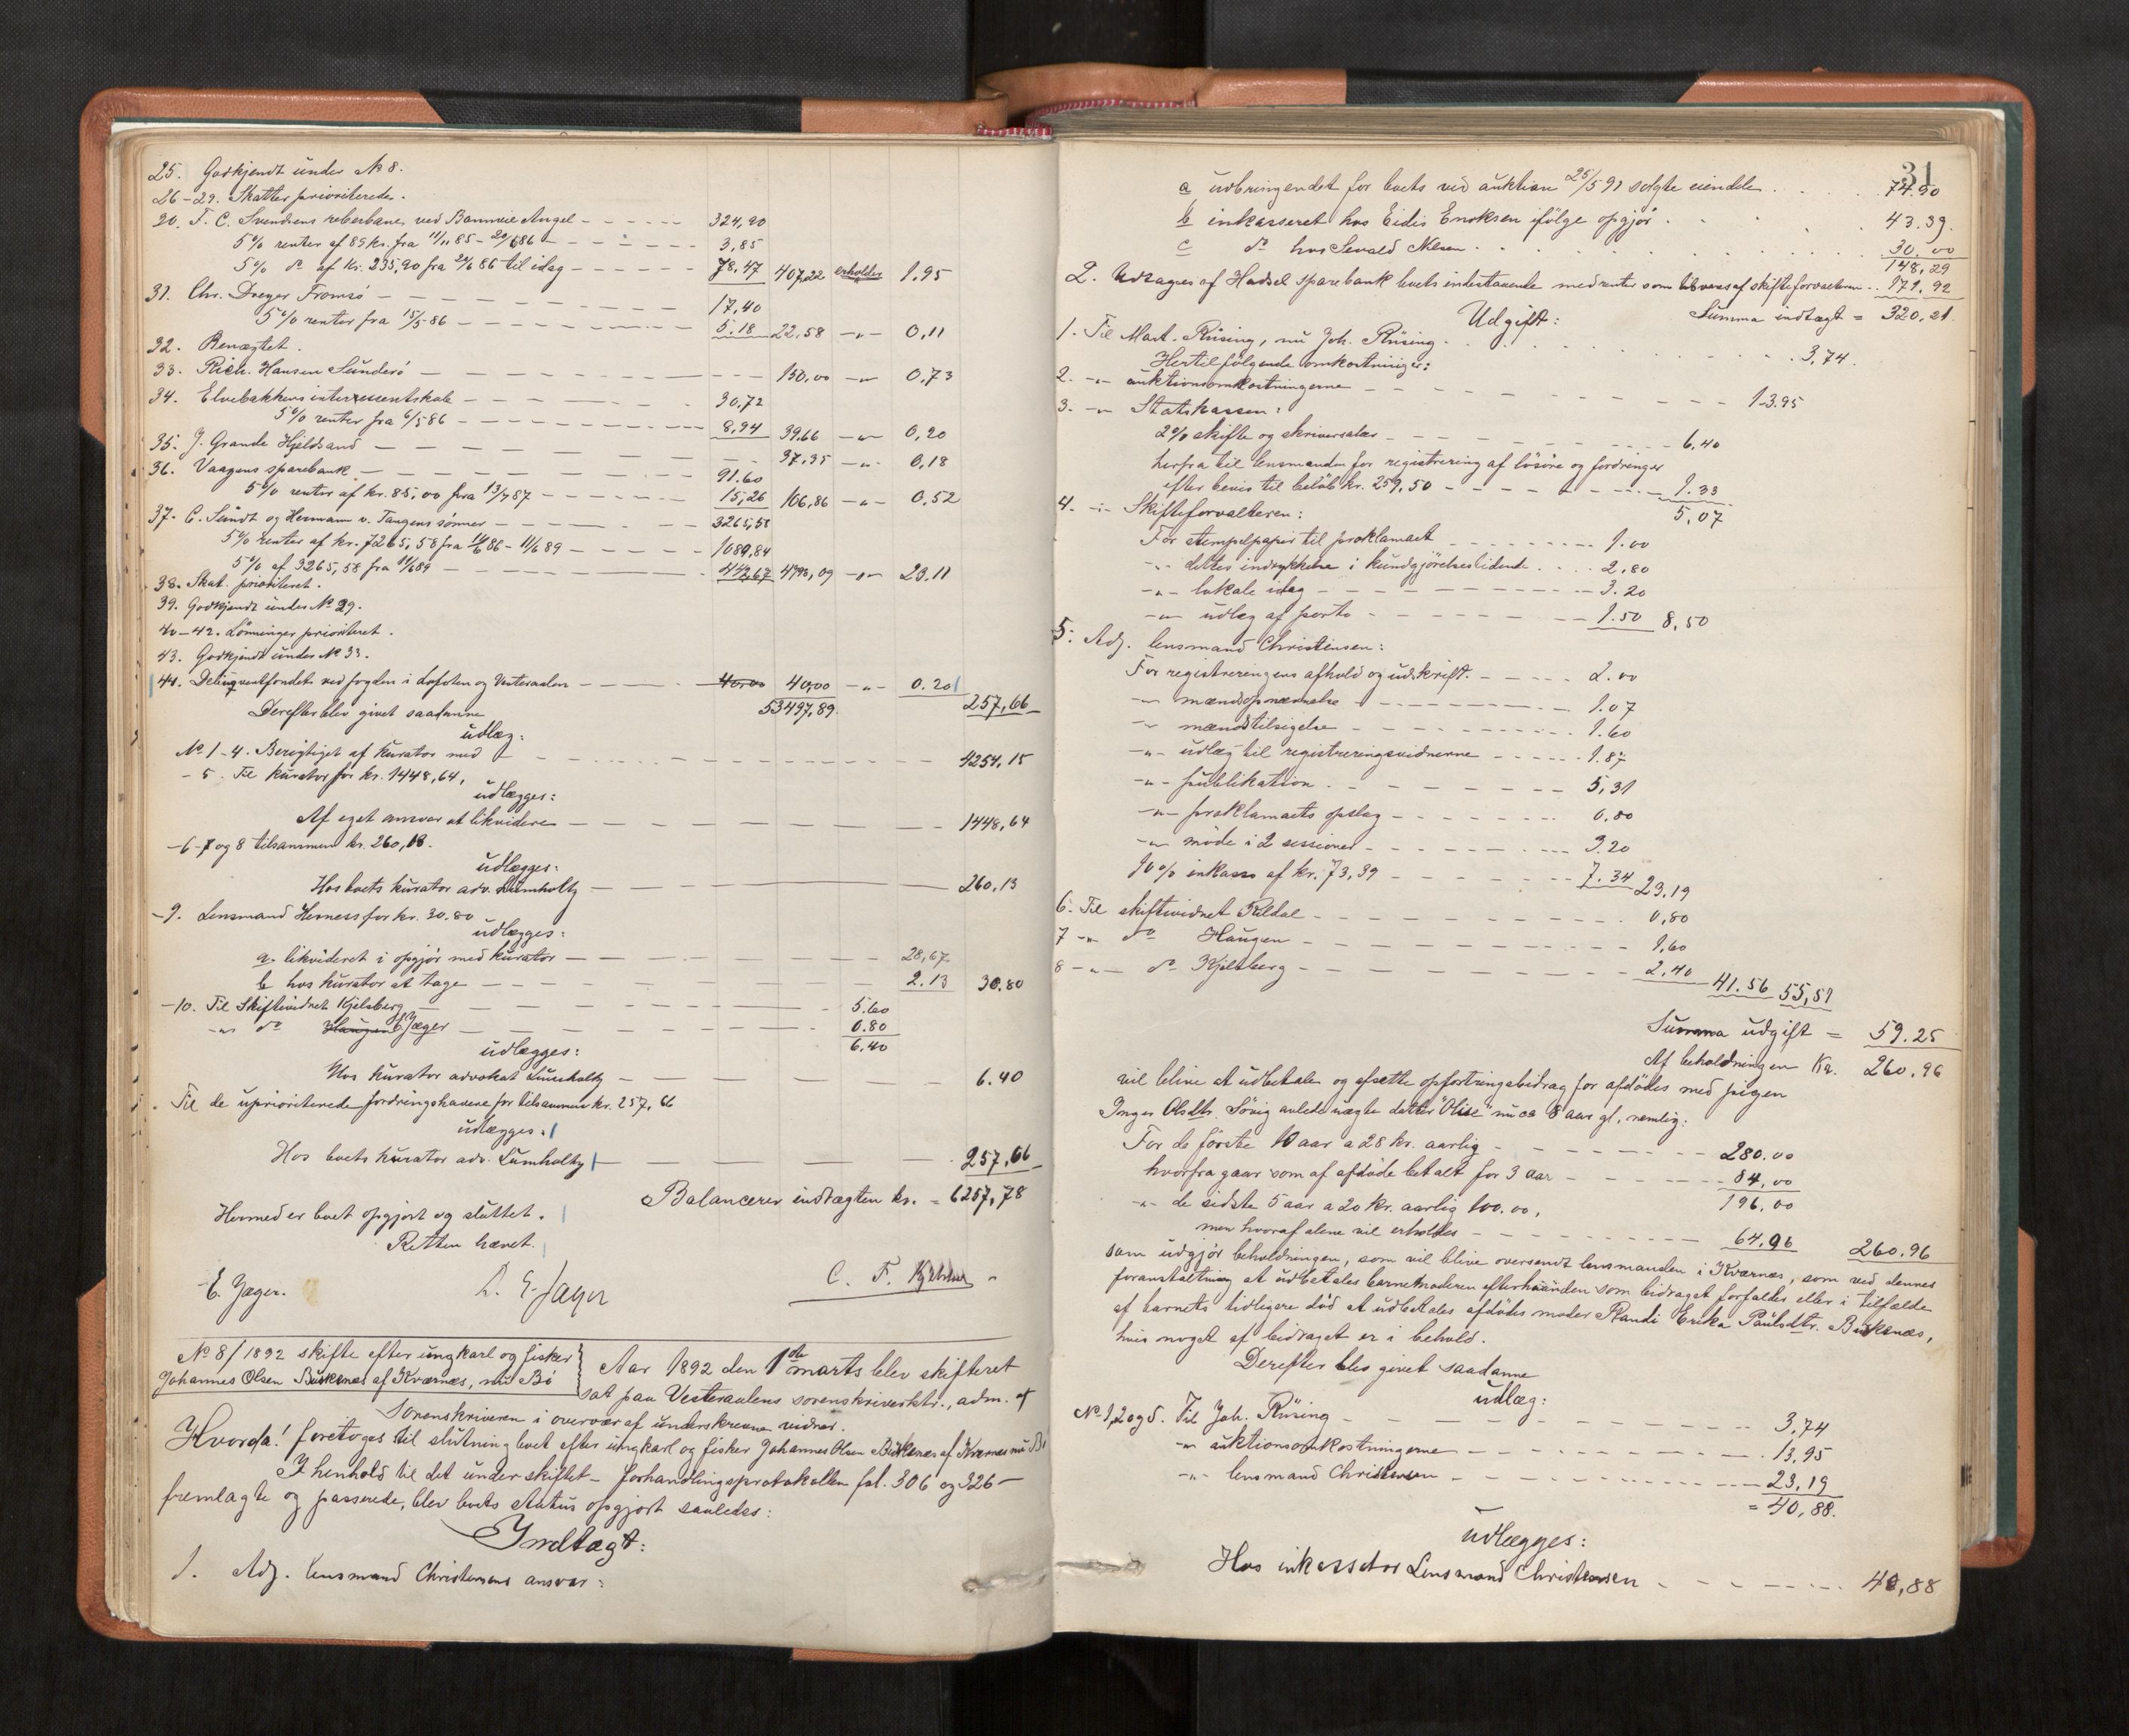 25. Godkjendt under No 8.
26-29. Skatter prioriterede.
20. T. C. Svendsens reberbane ved Angel 324,90
5% renter af 89 kr. fra 11/11 85 - 3,85
5% do af kr. 235,90 fra 24/6 86 til idag 78,47 407,22 erholder 1,95
31. Chr. Dreyer Tromsö 17,40
5% renter fra 15/5 86 5.18 22.58 -"- 0,11
32. Benægtet.
33. Rich. Hansen Sunderö 150,00 -"- 0,73
34. Elvebakkens interessentskab 30.72
5% renter fra 6/5 86 8,94 39.66 -"- 0,20
35. J. Grande Hjeldsand 37,35 -"- 0,18
36. Vaagens sparebank 91.60
5% renter af kr. 85,00 fra 13/7 87 15,26 106,86 -"- 0,52
37. C. Sundt og Hermann v. Tangens sønner 3265,58
5% renter af kr. 7265,58 fra 11/6 86 - 11/6 89 1089,84
5% af 3265,58 fra 11/6 89 442,67 4798,09 -"- 23.11
38. Skat. prioriteret.
39. Godkjendt under No 29.
40-42. Lönninger prioriteret.
43. Godkjendt under No 33.
44. Delinqventfondet ved fogden i Lofoten og Vesteraalen 40,00 40,00 -"- 0.20
53497,89 257,66
Derefter blev givet saadanne
udlæg:
No 1-4. Berigtiget af kurator med 4254,15
- 5. Til kurator for kr. 1448,64,
udlægges:
Af eget ansvar at likvidere 1448,64
-6-7 og 8 tilsammen kr. 260,13.
udlægges:
Hos boets kurator adv. Lumholtz 260,13
-9. Lensmand Herness for kr. 30.80
udlægges:
a. likvideret i opgjör med kurator 28,67
b hos kurator at tage 2.13 30.80
-10. Til Skiftevidnet Kjelsberg 5.60
-"- do Haugen E Jæger 0.80
6.40
udlægges:
Hos kurator advokat Lumholtz 6.40
Til de uprioriterede fordringshavere for tilsammen kr. 257,66
udlægges:
Hos boets kurator adv. Lumholtz 257,66
Balancerer indtægten kr. = 6257,78
Hermed er boet opgjort og sluttet.
Retten hævet.
E. Jæger. C. F.
No 8/1892 skifte efter ungkarl og fisker
Johannes Olsen Buksnes af Kværnes, nu Bö
Aar 1892 den 1ste marts blev skifteret
sat paa Vesteraalens sorenskriverktr., adm. af
Sorenskriveren i overvær af underskrevne vidner.
Hvorda! foretoges til slutning boet efter ungkarl og fisker Johannes Olsen Buksnes af Kværnes nu Bö
I henhold til det under skiftet - forhandlingsprotokollen fol. 306 og 326 -
fremlagte og passerede, blev boets status opgjort saaledes:
Indtægt:
1. Adj. lensmand Christensens ansvar:
31
a udbringendet for boets ved auktion 25/5 91 solgte eiendele 74.90
b inkasseret hos Eidis Enoksen ifölge opgjör 43.39.
c do hos Sevald Nilsen 30.00
148,29
2. Udtages af Hadsel sparebank boets indestaaende med renter som tilsvares af skifteforvalteren 171.92
Summa indtægt = 320,21.
Udgift:
1. Til Mart. Rüsing, nu Joh. Rüsing 3,74.
Hertil fölgende omkostninger:
2. -"- auktionsomkostningerne 13.95
3. -"- Statskassen:
2% skifte og skriversalær 6.40
herfra til lensmanden for registrering af lösöre og fordringer
efter bevis til belöb kr. 259,50 1.33
5,07
4. -"- Skifteforvalteren:
For stempelpapir til proklamaet 1.00
-"- dettes indrykkelse i kundgjörelsestidende 2,80
-"- lokale idag 3.20
-"- udlæg af porto 1.50 8,50
5. Adj. lensmand Christensen:
For registreringens afhold og udskrift. 2.00
-"- mændsopnævnelse 1.07
-"- mændstilsigelse 1.60
-"- udlæg til registreringsvidnerne 1.87
-"- publikation 5,31
-"- proklamaets opslag 0.80
-"- möde i 2 sessioner 3.20
10% inkasso af kr. 73,39 7.34 23.19
6. Til skiftevidnet Rildal 0,80
7 -"- do Haugen 1,60
8 -"- do Kjelsberg 2.40 41.56 55,51
Summa udgift = 59.25
Af beholdningen Kr. 260,96
vil blive at udbetale og afsætte opfostringsbidrag for afdödes med pigen
Inger Olsdtr. Sövig avlede uægte datter "Olise" nu ca 8 aar gl., nemlig:
For de förste 10 aar a 28 kr. aarlig 280.00
hvorfra gaar som af afdöde betalt for 3 aar 84,00
196,00
-"- de sidste 5 aar a 20 kr. aarlig 100.00,
men hvoraf alene vil erholdes 64.96 260.96
som udgjör beholdningen, som vil blive oversendt lensmanden i Kværnes, som ved dennes
foranstaltning at udbetales barnemoderen efterhaanden som bidraget forfalder eller i tilfælde
af barnets tidligere död at udbetales afdödes moder Randi Erika Paulsdtr. Buksnæs,
hvis noget af bidraget er i behold.
Derefter blev givet saadanne
udlæg:
No 1, 2 og 5. Til Joh. Rüsing 3,74
-"- auktionsomkostningerne 13,95
-"- lensmand Christensen 23,19
= 40,88.
udlægges:
Hos inkassator Lensmand Christensen 40,88